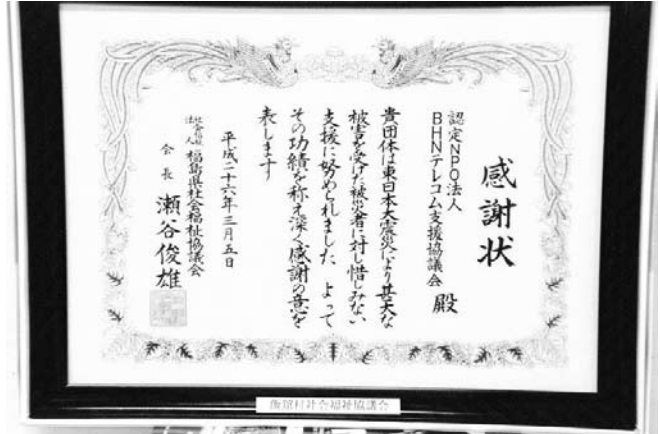 感謝状
認定NPO法人
BHNテレコム支援協議会 殿
貴団体は東日本大震災により甚大な
被害を受けた被災者に対し惜しみない
支援に努められました よって
その功績を称え深く感謝の意を
表します
平成二十六年三月五日
社会福祉法人 福島県社会福祉協議会
会長 瀬谷俊雄
飯舘村社会福祉協議会